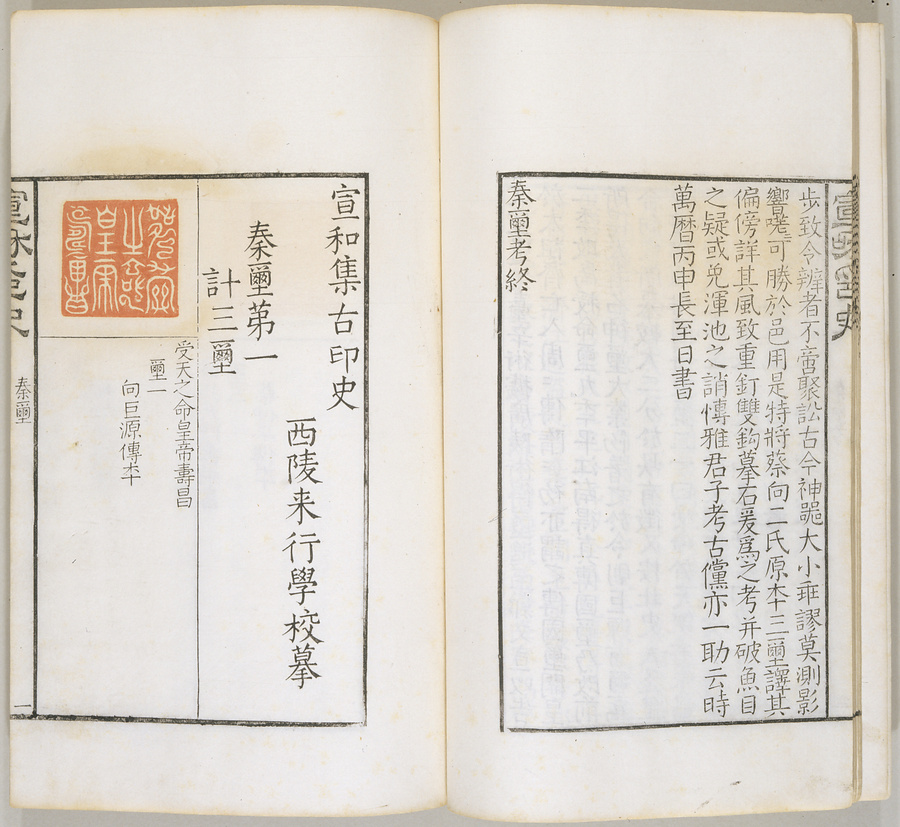 歩致令辨者不啻聚訟古今神噐大小乖謬莫測影
響嗟可勝於邑用是特將蔡向二氏原本三璽譯其
偏傍詳其風致重釘雙鈎摹石爰爲之考并破魚目
之疑或免渾池之誚愽雅君子考古儻亦一助云時
萬曆丙申長至日書
秦璽考終
宣和集古印史
西陵来行學校摹
秦璽第一
計三璽
受天之命皇帝壽昌
璽一
向巨源傳本
宣和印史
秦璽
一